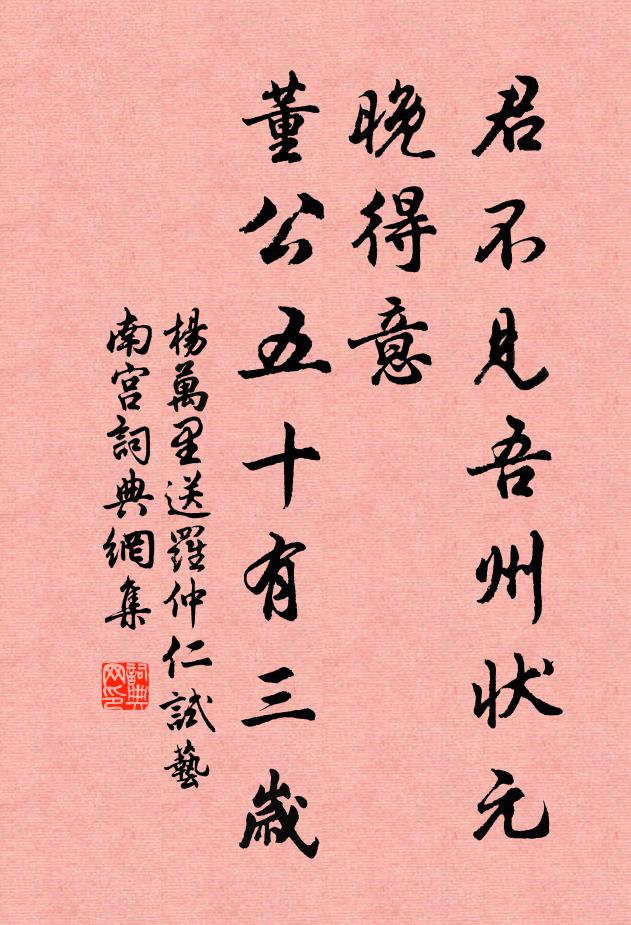 君不見吾州狀元
晚得意
董公五十有三歲
楊萬里送羅仲仁試藝
南宮詞典網集
詞典
网印